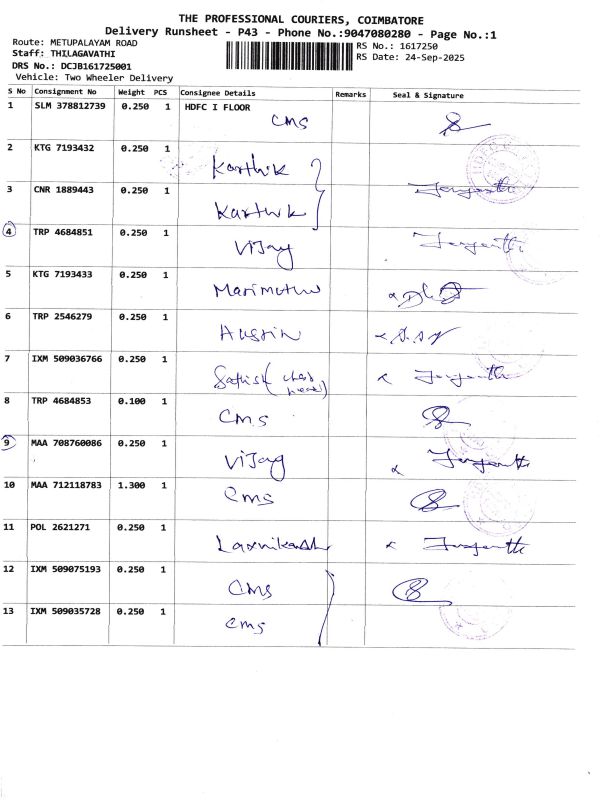 THE PROFESSIONAL COURIERS, COIMBATORE
Delivery Runsheet - P43 - Phone No.:9047080280 - Page No.:1
Route: METUPALAYAM ROAD
Staff: THILAGAVATHI
DRS No.: DCJB161725001
Vehicle: Two Wheeler Delivery
RS No.: 1617250
RS Date: 24-Sep-2025
S No Consignment No Weight PCS Consignee Details Remarks Seal & Signature
1 SLM 378812739 0.250 1 HDFC I FLOOR
CMS
2 KTG 7193432 0.250 1 Karthik
3 CNR 1889443 0.250 1 Karthik Jayanthi
4 TRP 4684851 0.250 1 Vijay Jayanthi
5 KTG 7193433 0.250 1 Marimuthu
6 TRP 2546279 0.250 1 Austin
7 IXM 509036766 0.250 1 Sathish Jayanthi
8 TRP 4684853 0.100 1 CMS
9 MAA 708760086 0.250 1 Vijay Jayanthi
10 MAA 712118783 1.300 1 CMS
11 POL 2621271 0.250 1 Jayanthi
12 IXM 509075193 0.250 1 CMS
13 IXM 509035728 0.250 1 CMS